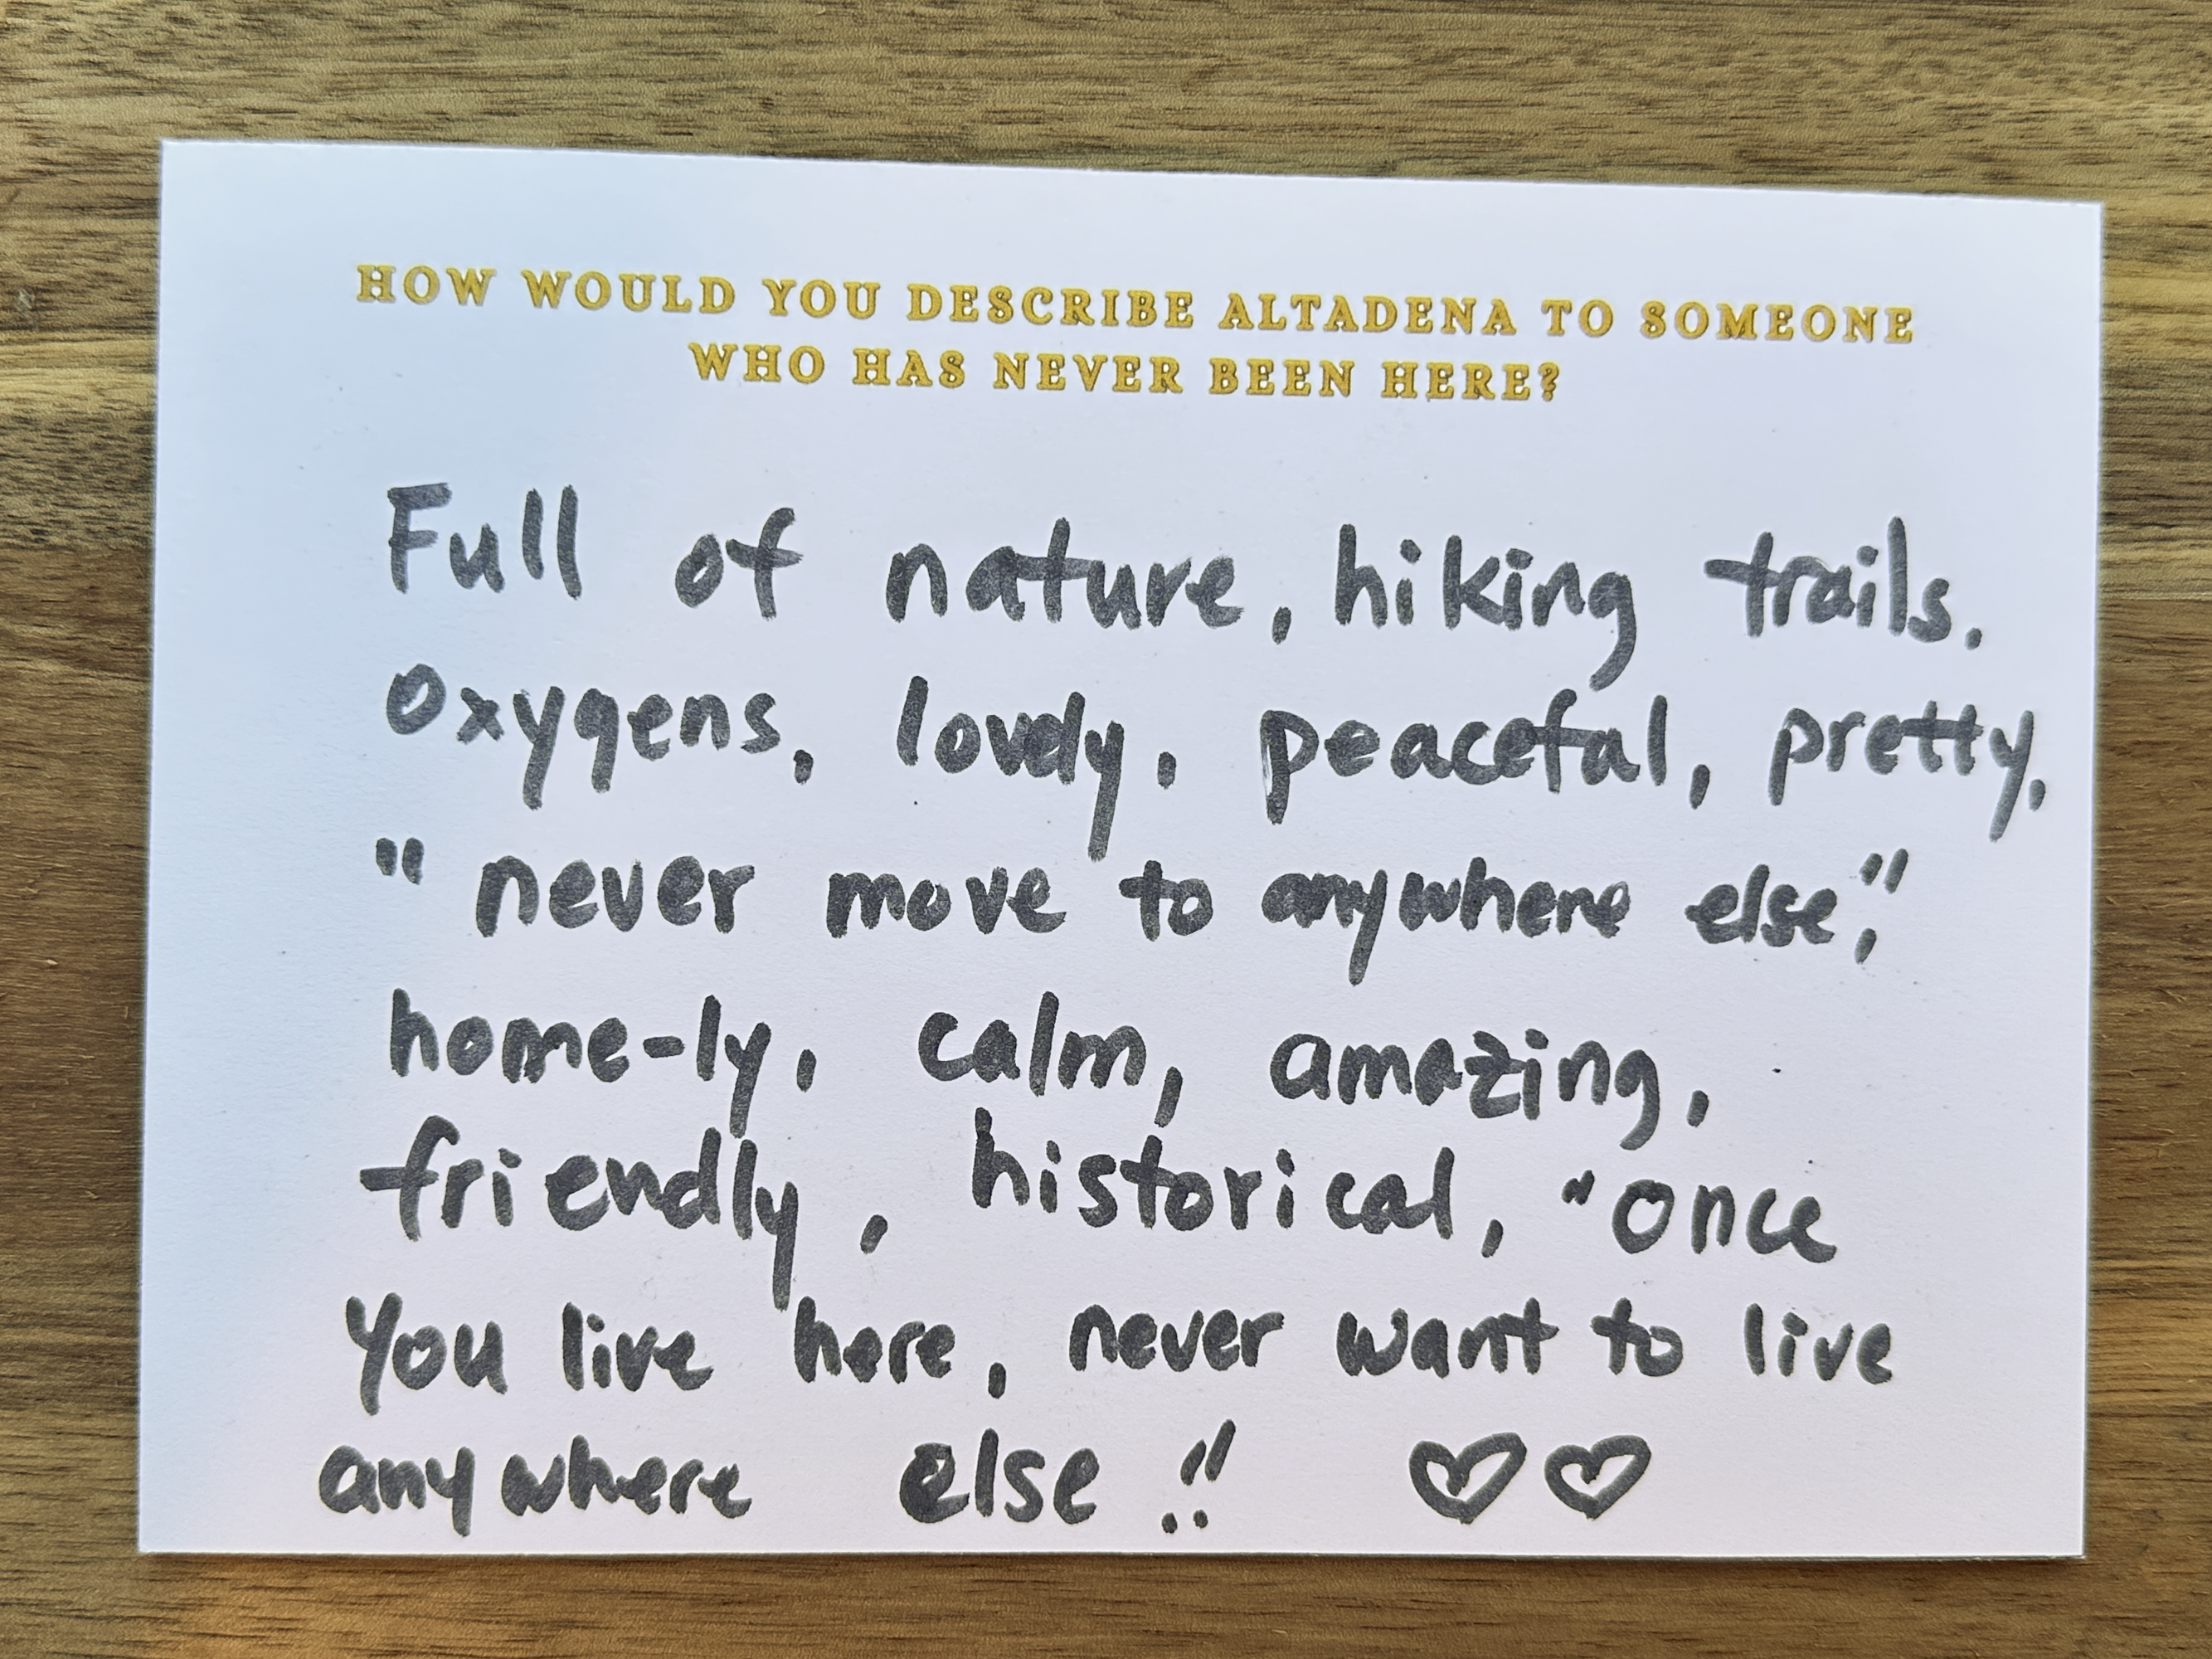 HOW WOULD YOU DESCRIBE ALTADENA TO SOMEONE
WHO HAS NEVER BEEN HERE?
Full of nature, hiking trails.
Oxygens, lovely, peaceful, pretty,
"never move to anywhere else,"
home-ly, calm, amazing,
friendly, historical, "once
You live here, never want to live
anywhere else!! ♡♡